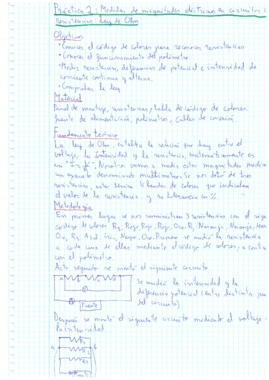 Práctica 2: Medidas de magnitudes eléctricas en circuitos
resistencias. Ley de Ohm
Objetivos
• Conocer el código de colores para reconocer resistencias
• Conocer el funcionamiento del polímetro
• Medir resistencias, diferencias de potencial e intensidad de
corriente continua y alterna.
• Comprobar la ley
Material
Panel de montaje, resistencias, tabla de código de colores,
fuente de alimentación, polímetro, cables de conexión.
Fundamento teórico
La ley de Ohm, establece la relación que hay entre el
voltaje, la intensidad y la resistencia, matemáticamente es
Nosotros vamos a medir estas magnitudes
un aparato denominado multímetro. Se nos dotó de tres
resistencias, estas tenían 4 bandas de colores que indicaban
el valor de la resistencia y su tolerancia en %.
Metodología
En primer lugar se nos suministran 3 resistencias con el
código de colores R1, Rojo, Rojo, Rojo, Oro. R2 Naranja, Naranja,
Oro, R3 Azul, Negro, Oro. se medir la resistencia
a cada una de ellas mediante el código de colores,
con el polímetro.
Acto seguido se montó el siguiente circuito
Se medía la intensidad y la
diferencia potencial entre distintos
del circuito
Fuente
Después se montó el siguiente circuito midiendo el voltaje
la intensidad